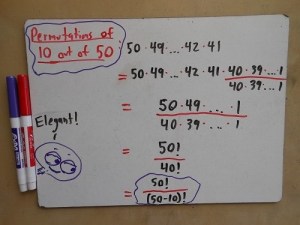 Permutations of
10 out of 50
50·49·...·42·41
= 50·49·...·42·41·40·39·...·1
40·39·...·1
= 50·49·...·1
40·39·...·1
Elegant!
= 50!
40!
= 50!
(50-10)!